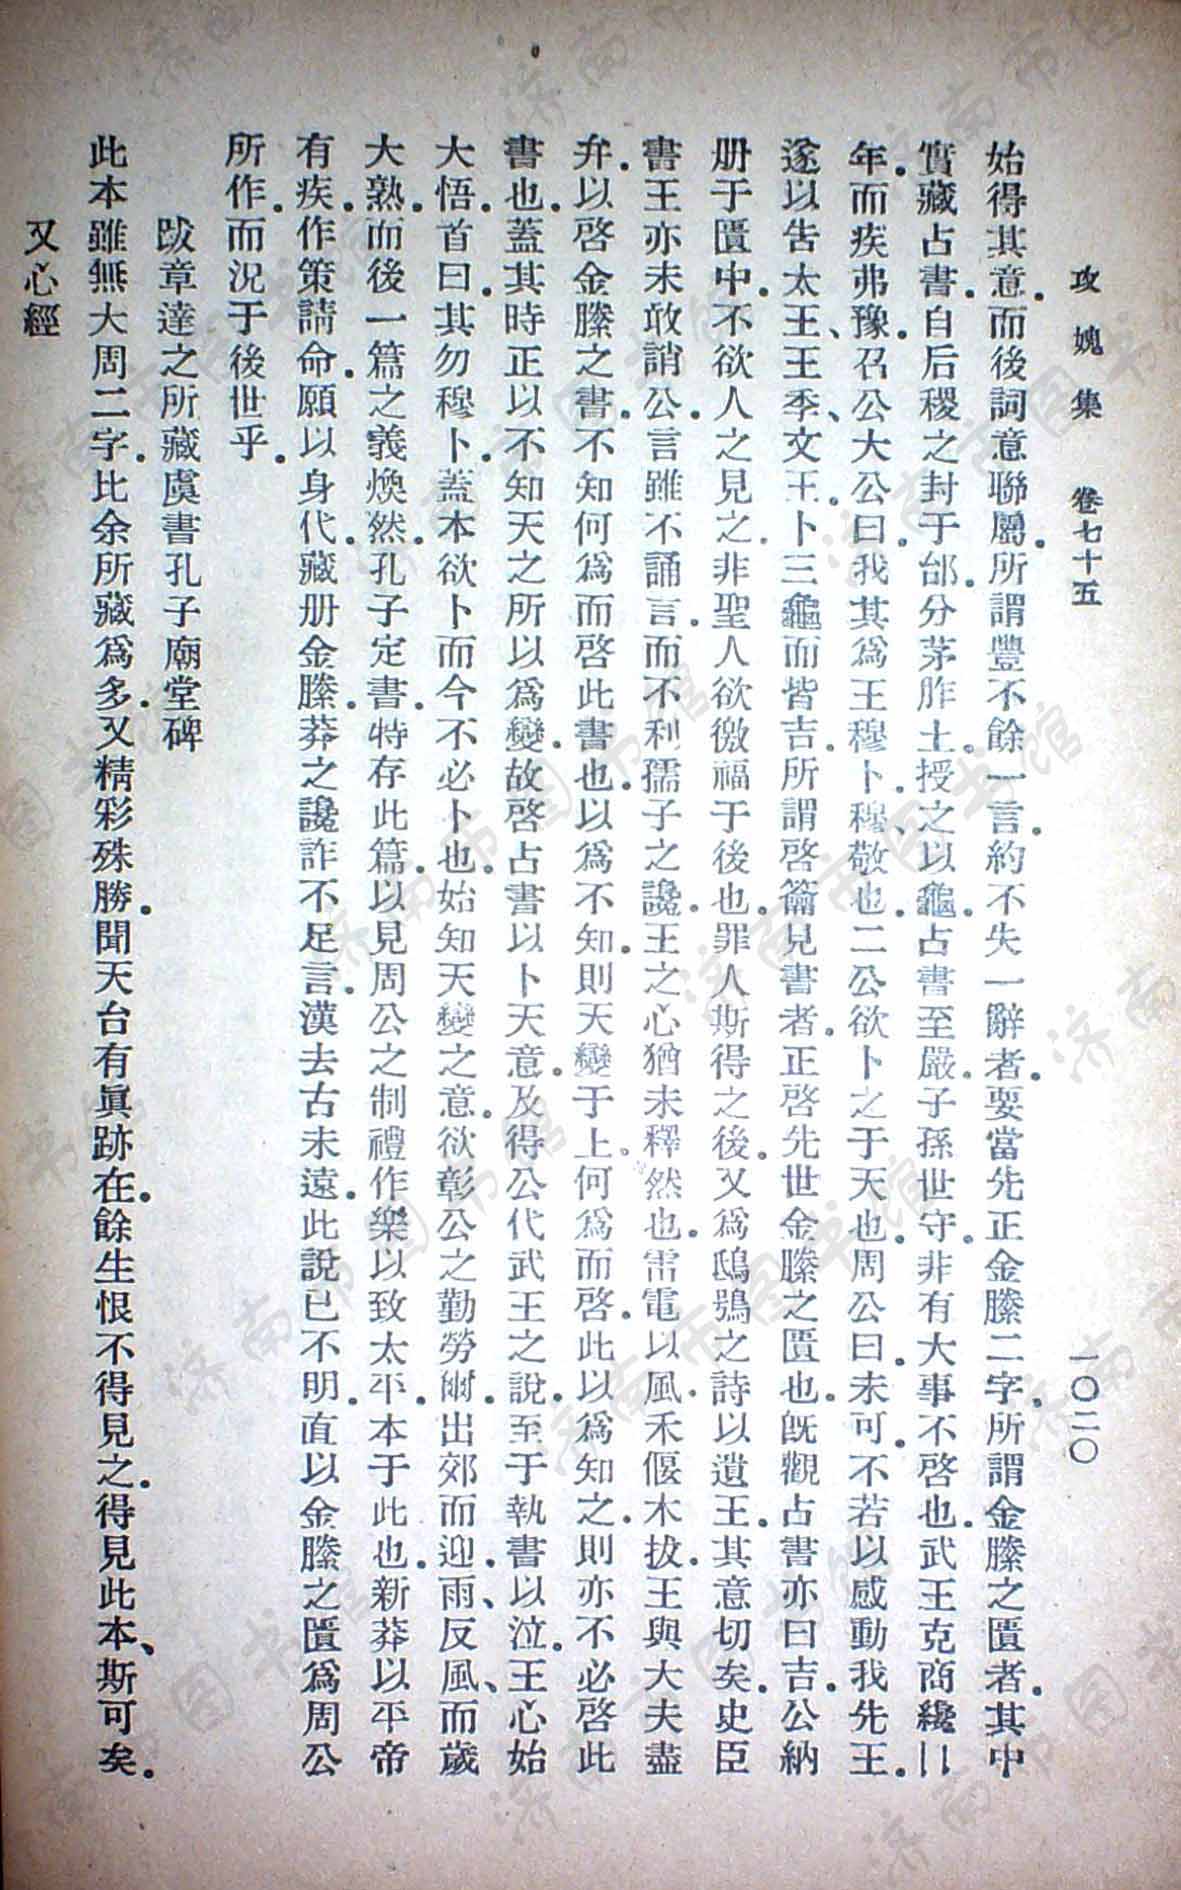 攻媿集　卷七十五　一〇二〇
始得其意．而後詞意聯屬．所謂豐不餘一言．約不失一辭者．要當先正金縢二字．所謂金縢之匱者．其中
實藏占書．自后稷之封于邰．分茅胙土．授之以龜．占書至嚴．子孫世守．非有大事不啓也．武王克商纔二
年．而疾弗豫．召公大公曰．我其爲王穆卜．穆、敬也．二公欲卜之于天也．周公曰．未可．不若以感動我先王．
遂以告太王、王季、文王．卜三龜而皆吉．所謂啓籥見書者．正啓先世金縢之匱也．旣觀占書亦曰吉．公納
册于匱中．不欲人之見之．非聖人欲徼福于後也．罪人斯得之後．又爲鴟鴞之詩以遺王．其意切矣．史臣
書王亦未敢誚公．言雖不誦言．而不利孺子之讒．王之心猶未釋然也．雷電以風．禾偃木拔．王與大夫盡
弁．以啓金縢之書．不知何爲而啓此書也．以爲不知．則天變于上．何爲而啓．此以爲知之．則亦不必啓此
書也．蓋其時正以不知天之所以爲變．故啓占書以卜天意．及得公代武王之說．至于執書以泣．王心始
大悟．首曰．其勿穆卜．蓋本欲卜而今不必卜也．始知天變之意．欲彰公之勤勞爾．出郊而迎．雨、反風、而歲
大熟．而後一篇之義煥然．孔子定書．特存此篇．以見周公之制禮作樂以致太平．本于此也．新莽以平帝
有疾．作策請命．願以身代．藏册金縢．莽之讒詐不足言．漢去古未遠．此說已不明．直以金縢之匱爲周公
所作．而況于後世乎．
跋章達之所藏虞書孔子廟堂碑
此本雖無大周二字．比余所藏爲多．又精彩殊勝．聞天台有眞跡在．餘生恨不得見之．得見此本、斯可矣．
又心經